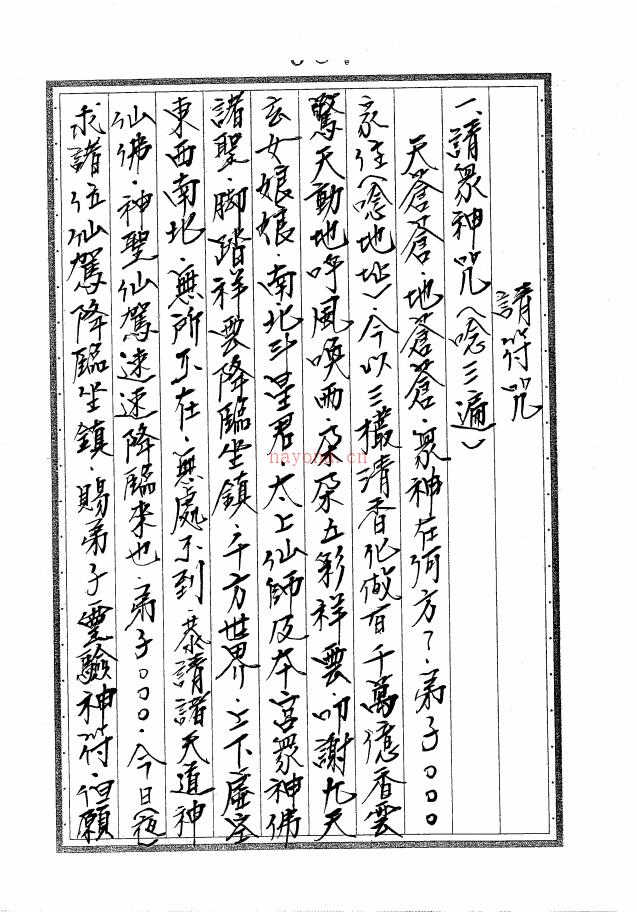 請符咒
一、請眾神咒(唸三遍)
天蒼蒼．地蒼蒼．眾神在何方？．弟子○○○
家住(唸地址)．今以三櫃清香化做百千萬億香雲
驚天動地呼風喚雨．朵朵五彩祥雲．叩謝九天
玄女娘娘．南北斗星君．太上仙師及本宮眾神佛
諸聖．腳踏祥雲降臨坐鎮．十方世界．上下虛空
東西南北．無所不在．無處不到．恭請諸天道神
仙佛．神聖仙駕速速降臨來也．弟子○○○．今日(夜)
求諸位仙駕降臨坐鎮．賜弟子靈驗神符．但願
nayona.cn